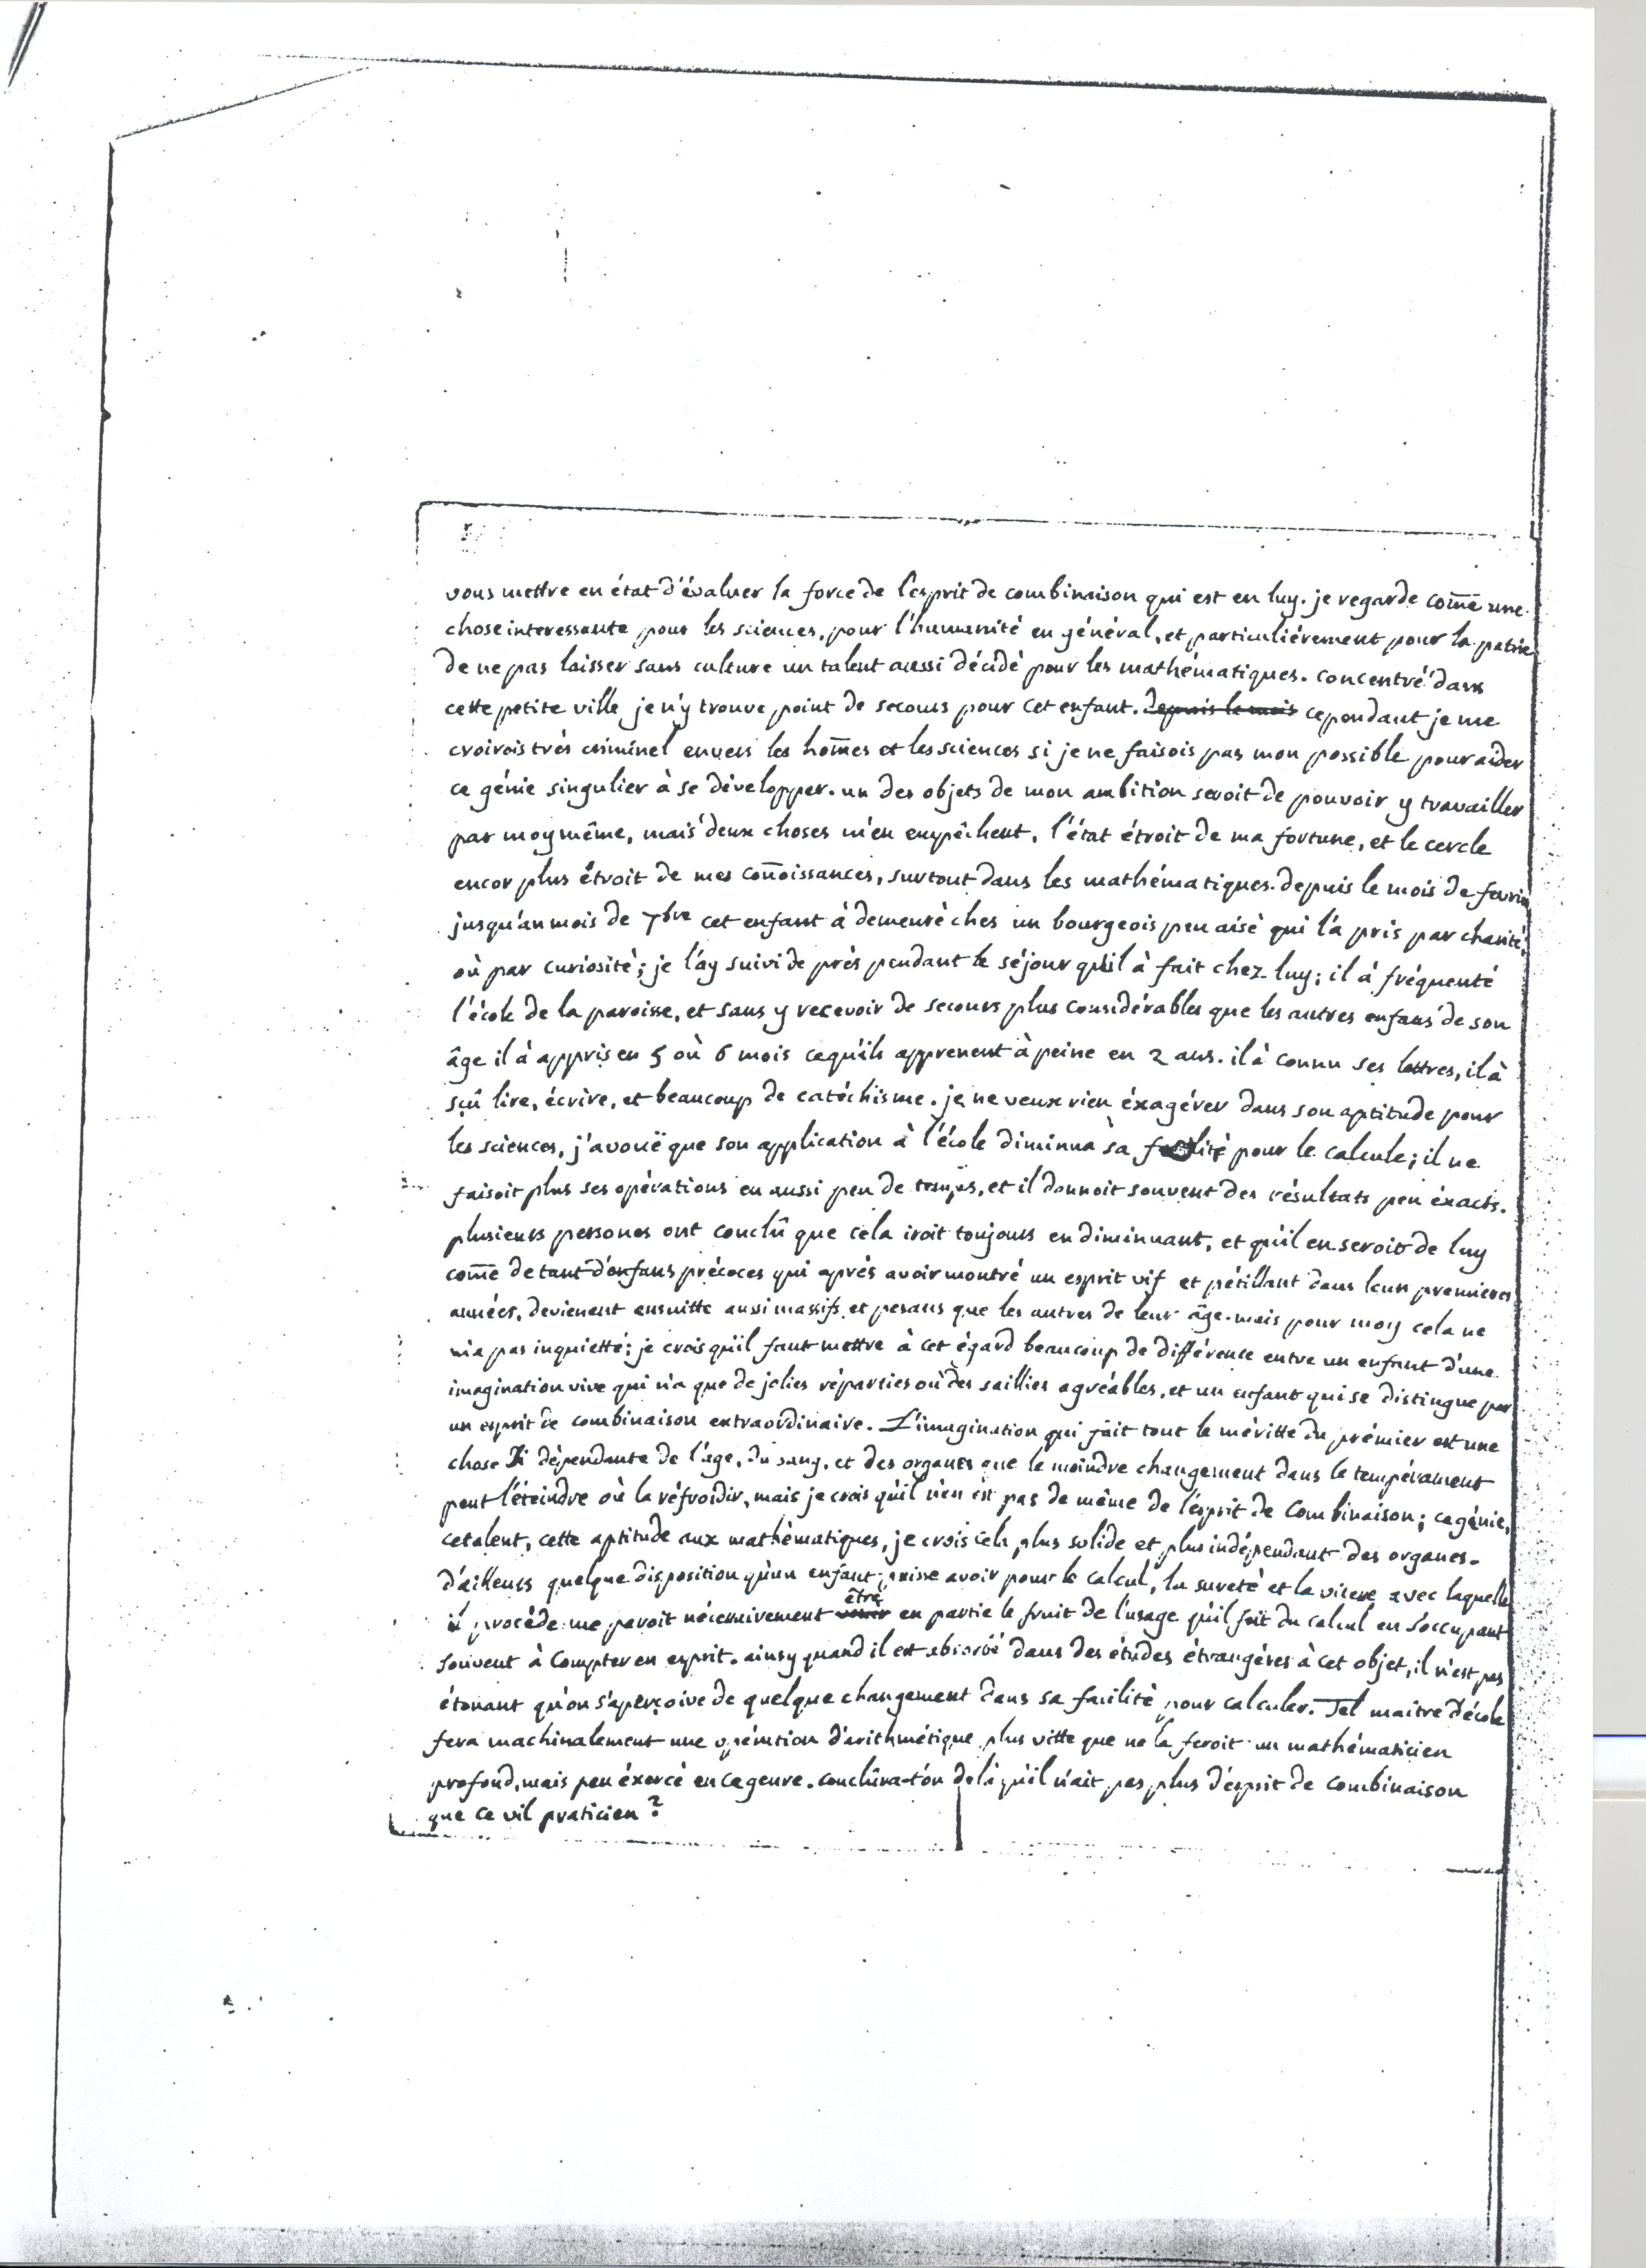 vous mettre en état d'évaluer la force de l'esprit de combinaison qui est en luy. je regarde com̄e une
chose interessante pour les sciences, pour l'humanité en général, et particuliérement pour la patrie
de ne pas laisser sans culture un talent aussi décidé pour les mathématiques. concentré dans
cette petite ville je n'y trouve point de secours pour cet enfant. depuis le mois cependant je me
croirois très criminel envers les hom̄es et les sciences si je ne faisois pas mon possible pour aider
ce génie singulier à se développer. un des objets de mon ambition seroit de pouvoir y travailler
par moy même, mais deux choses m'en empêchent, l'état étroit de ma fortune, et le cercle
encor plus étroit de mes con̄oissances, surtout dans les mathématiques. depuis le mois de fevrier
jusqu'au mois de 7bre cet enfant à demeuré ches un bourgeois peu aisé qui l'a pris par charité
où par curiosité; je l'ay suivi de près pendant le séjour qu'il à fait chez luy; il à fréquenté
l'école de la paroisse, et sans y recevoir de secours plus considérables que les autres enfans de son
âge il à appris en 5 où 6 mois cequ'ils apprenent à peine en 2 ans. il à connu ses lettres, il à
sçû lire, écrire, et beaucoup de catéchisme. je ne veux rien éxagérer dans son aptitude pour
les sciences, j'avouë que son application à l'école diminua sa facilité pour le calcule; il ne
faisoit plus ses opérations en aussi peu de temps, et il donnoit souvent des résultats peu éxacts.
plusieurs persones ont conclû que cela iroit toujours en diminuant, et qu'il en seroit de luy
com̄e de tant d'enfans précoces qui aprés avoir montré un esprit vif et pétillant dans leurs premieres
années, devienent ensuitte aussi massifs et pesans que les autres de leur âge. mais pour moy cela ne
m'a pas inquietté; je crois qu'il faut mettre à cet égard beaucoup de différence entre un enfant d'une
imagination vive qui n'a que de jolies réparties où des saillies agréables, et un enfant qui se distingue par
un esprit de combinaison extraordinaire. L'imagination qui fait tout le méritte du prémier est une
chose si dépendante de l'age, du sang, et des organes que le moindre changement dans le tempérament
peut l'éteindre où la réfroidir, mais je crois qu'il n'en est pas de même de l'esprit de combinaison; ce génie,
ce talent, cette aptitude aux mathématiques, je crois cela plus solide et plus indépendant des organes.
d'ailleurs quelque disposition qu'un enfant puisse avoir pour le calcul, la sureté et la vitesse avec laquelle
il procède me paroit nécessairement être en partie le fruit de l'usage qu'il fait du calcul en s'occupant
souvent à compter en esprit. ainsy quand il est absorbé dans des études étrangéres à cet objet, il n'est pas
étonant qu'on s'aperçoive de quelque changement dans sa facilité pour calculer. Tel maitre d'école
fera machinalement une opération d'arithmétique plus vitte que ne la feroit un mathématicien
profond, mais peu éxercé en ce genre. conclûra-t'on delà qu'il n'ait pas plus d'esprit de combinaison
que ce vil praticien?